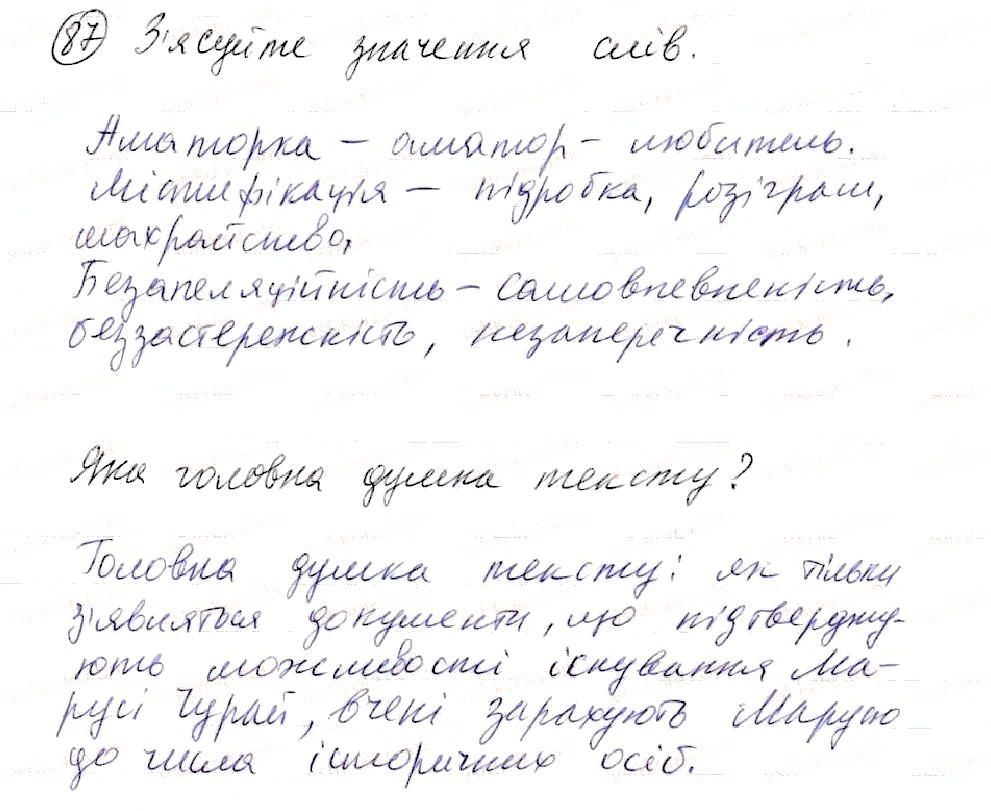 87 З'ясуйте значення слів.
Аматорка – аматор – любитель.
Містифікація – підробка, розіграш,
шахрайство.
Безапеляційність – самовпевненість,
беззастережність, незаперечність.
Яка головна думка тексту?
Головна думка тексту: як тільки
з'являться документи, що підтверджу-
ють можливості існування Ма-
русі Чурай, вчені зарахують Марусю
до числа історичних осіб.